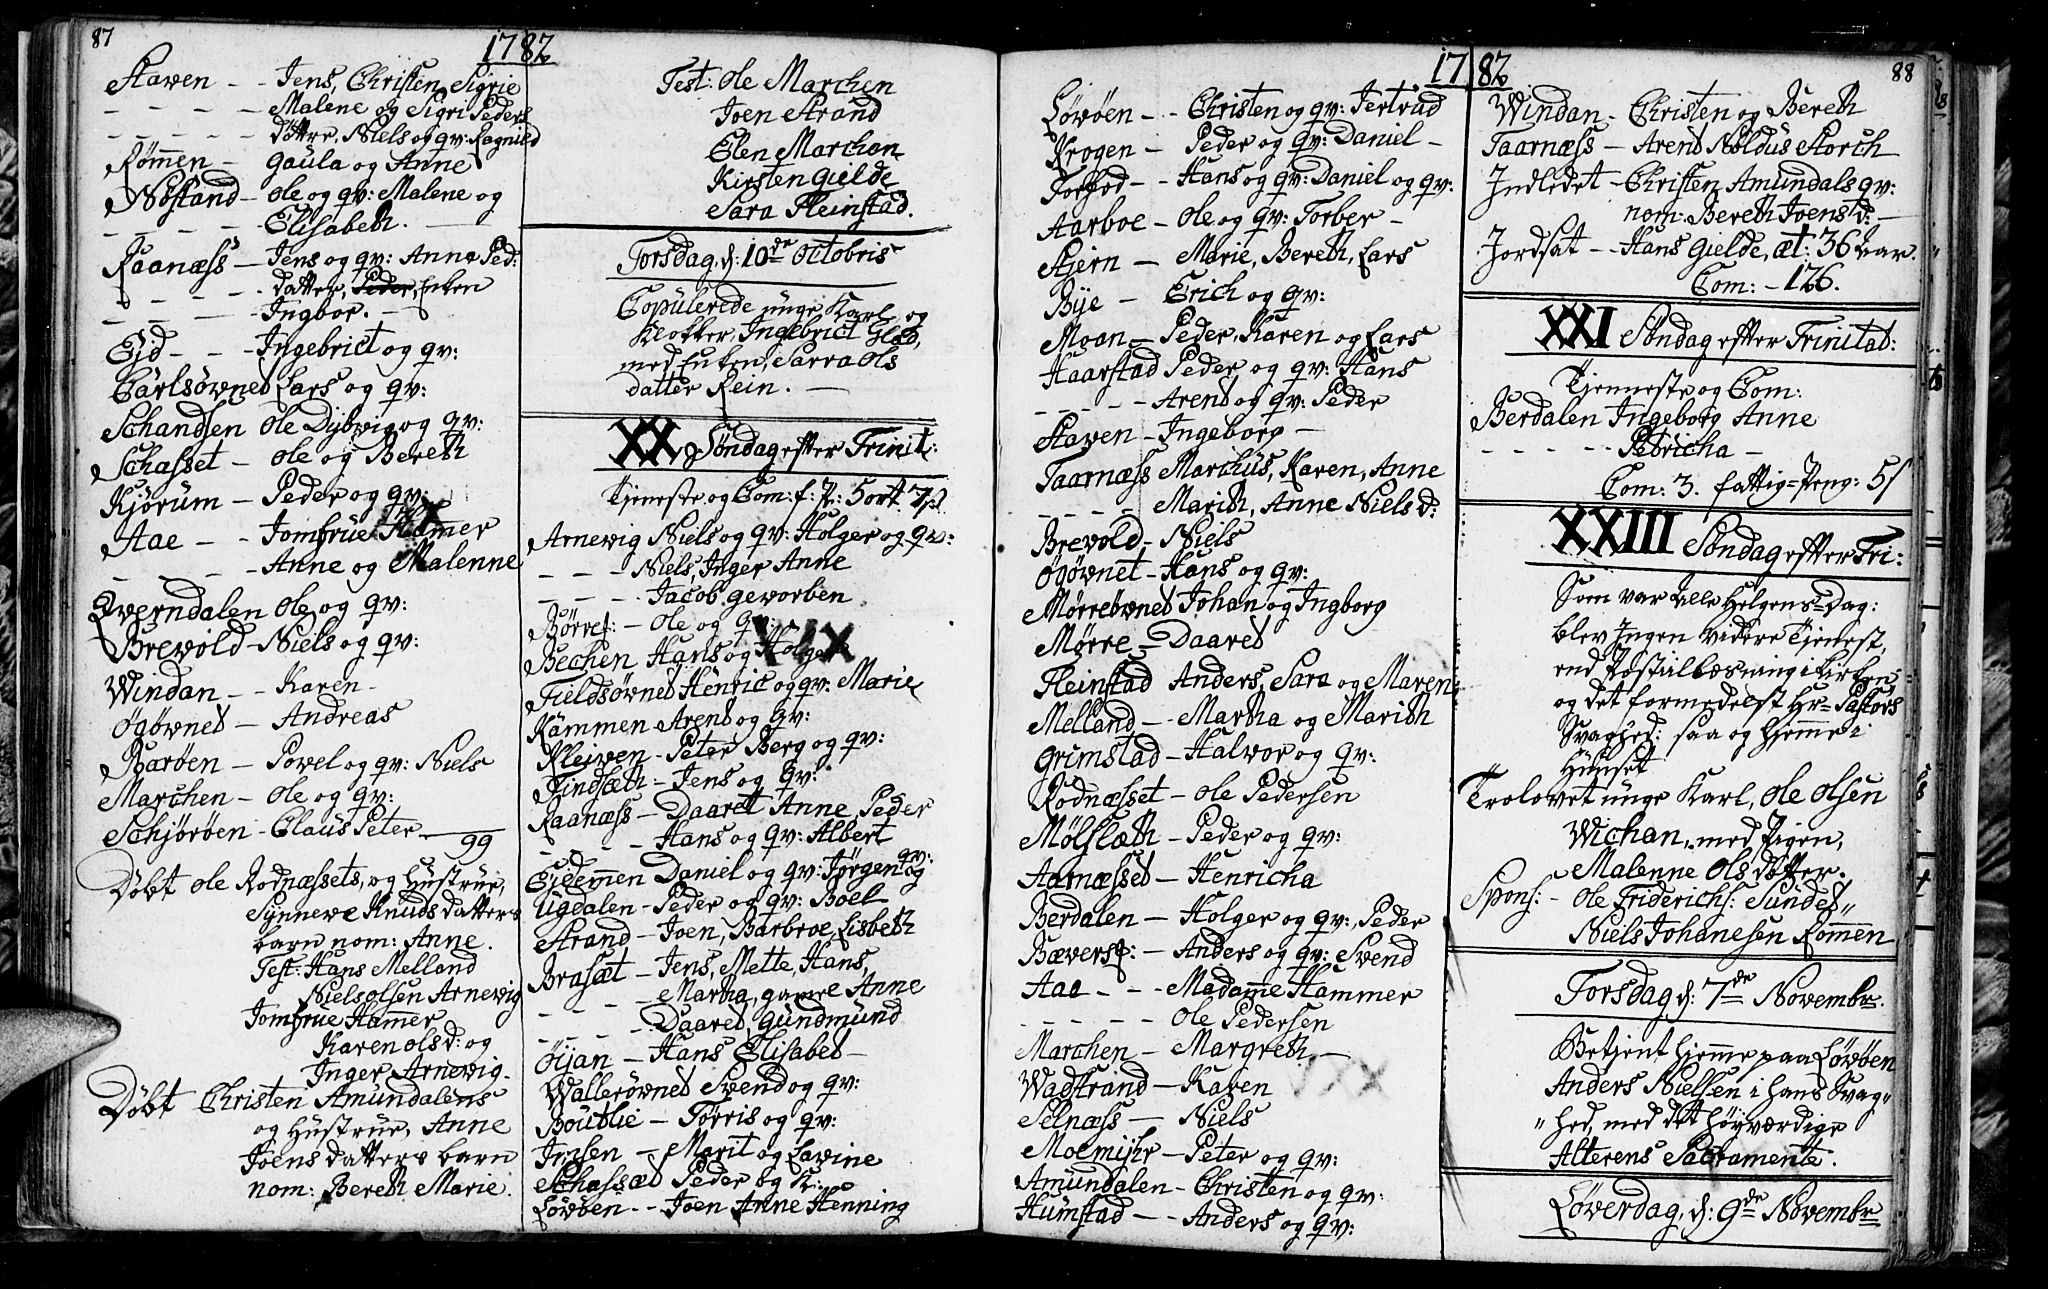 87
1782
Staven - - Jens, Christen, Sigrie
- - - - Malene og Sigri Peders
- - - - døttre, Niels og qv: Ragnild
Rømmen - Gaula og Anne
Nøstand - Ole og qv: Malene og
- - - - Elisabeth.
Raanæss - Jens og qv: Anna Ped:
- - - - datter, Peder, Enken
- - - - Ingbor. -
Eid - - - Ingebrict og qv:
Carlsøvned Lars og qv:
Schandsen Ole Dybvig og qv:
Schasset - Ole og Bereth
Kjørum - Peder og qv:
Aae - - - Jomfrue Hamer
- - - - Anne og Malenne
Qverndalen Ole og qv:
Brevold - Niels og qv:
Windan - - Karen -
Øgøvned - Andreas
Barøen - Povel og qv: Niels
Marchen - Ole og qv:
Schjørøen - Claus Peter
99
Døbt Ole Rodnæssets, og Hustrue,
Synneve Knuds datters
barn nom: Anne.
Test: Hans Melland
Niels Olsen Arnevig
Jomfrue Hamer
Karen Ols d: og
Inger Arnevig.
Døbt Christen Amundalens
og Hustrue, Anne
Joens datters barn
nom: Bereth Marie.
Test: Ole Marchen
Joen Strand
Elen Marchen
Kirsten Gielde
Sara Steinstad.
Torsdag, d: 10de Octobris
Copulerede unge Karl, og
Klokker, Ingebrict Glad,
med Enken, Sarra Ols
datter Rein. -
XX Søndag efter Trinit:
Tjeneste og Com: f: P: 5 ort 7 s
Arnevig Niels og qv: Holger og qv:
- - - Niels, Inger Anne
- - - Jacob geworben
Børres: - Ole og qv:
Bechen Hans og Holger
Fieldsøvned Henric og qv: Marie
Kammen Arend og qv:
Kleiven - Peter Berg og qv:
Rindsæth - Jens og qv:
Raanæss - Daaret Anne Peder
- - - Hans og qv: Albert
Eidemmen Daniel og qv: Jørgen og qv:
Ugedalen - Peder og qv: Boel
Strand - Joen, Barbroe, Lisbeth
Brasæt - Jens, Mette, Hans,
- - - Martha, gamle Anne
- - - Daared, Gundmund
Øyan - Hans Elisabet -
Wallersøvned Svend og qv:
Boutlie - Tørris og qv:
Indsen - Marit og Lavine
Schassæt Peder og K:
Løvøen - - Joen Anne Henning
1782
88
Løvøen - - Christen og qv: Jertrud
Krogen - Peder og qv: Daniel -
Forfod - - Hans og qv: Daniel og qv:
Aarboe - Ole og qv: Torber -
Stjern - Marie, Bereth, Lars
Bye - Erich og qv:
Moan - Peder, Karen og Lars
Haarstad Peder og qv: Hans
- - - - Arend og qv: Peder
Staven - Ingeborg -
Taarnæss Marchus, Karen, Anne
- - - - Marith, Anne Niels d:
Brevold - Niels
Øgøvnet - Hans og qv:
Mørreøvned Johan og Ingborg
Mørre - Daared
Steinstad Anders, Sara og Maren
Melland - - Martha og Marith
Grimstad - Halvor og qv:
Rodnæsset - Ole Pedersen
Mølslæth - Peder og qv:
Aarnæsset - Henricha
Berdalen - Holger og qv: Peder
Bæversf: - Anders og qv: Svend
Aae - - - Madame Hammer
- - - - Ole Pedersen
Marchen - Margreth. -
Wadstrand - Karen
Selnæss - Niels
Moemyhr - Peter og qv:
Amundalen - Christen og qv:
Humstad - - Anders og qv:
Windan - Christen og Bereth
Taarnæss - Arend Noldus Storch
Indledet - Christen Amundals qv:
nom: Bereth Joensd: -
Jordsat - Hans Gielde, æt: 36 Aar.
Com: - 126.
XXI Søndag efter Trinitat:
Tjenneste og Com:
Berdalen Ingeborg Anne
- - - - Petricha -
Com: 3. Fattig-Peng: 5 s
XXIII Søndag efter Tri:
Som var Alle Helgens-Dag:
blev Ingen videre Tjenest,
end Postillæsning i Kirken
og det formedelst Hr: Pastors
Svaghed: saa og hjemme i
Huuset
Trolovet unge Karl, Ole Olsen
Wichan, med Pigen,
Malenne Ols datter.
Spons: - Ole Friderichs: Sundet"
Niels Johanesen Rømen
Torsdag, d: 7de Novembr.
Betjent hjemme paa Løvøen
Anders Nielsen i hans Svag"
"hed, med det høyværdige
Alterens Sacramente.
Løverdag, d: 9de Novembr